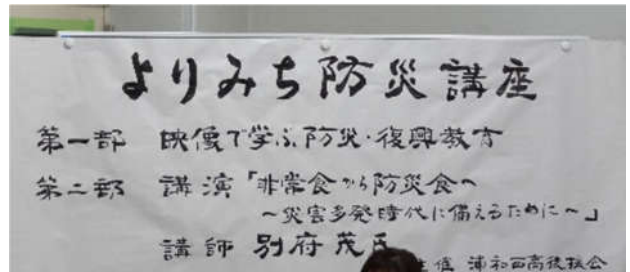 よりみち防災講座
第一部 映像で学ぶ防災・復興教育
第二部 講演「非常食から防災食へ
～災害多発時代に備えるために～」
講師 別府茂氏
主催 浦和西高後援会